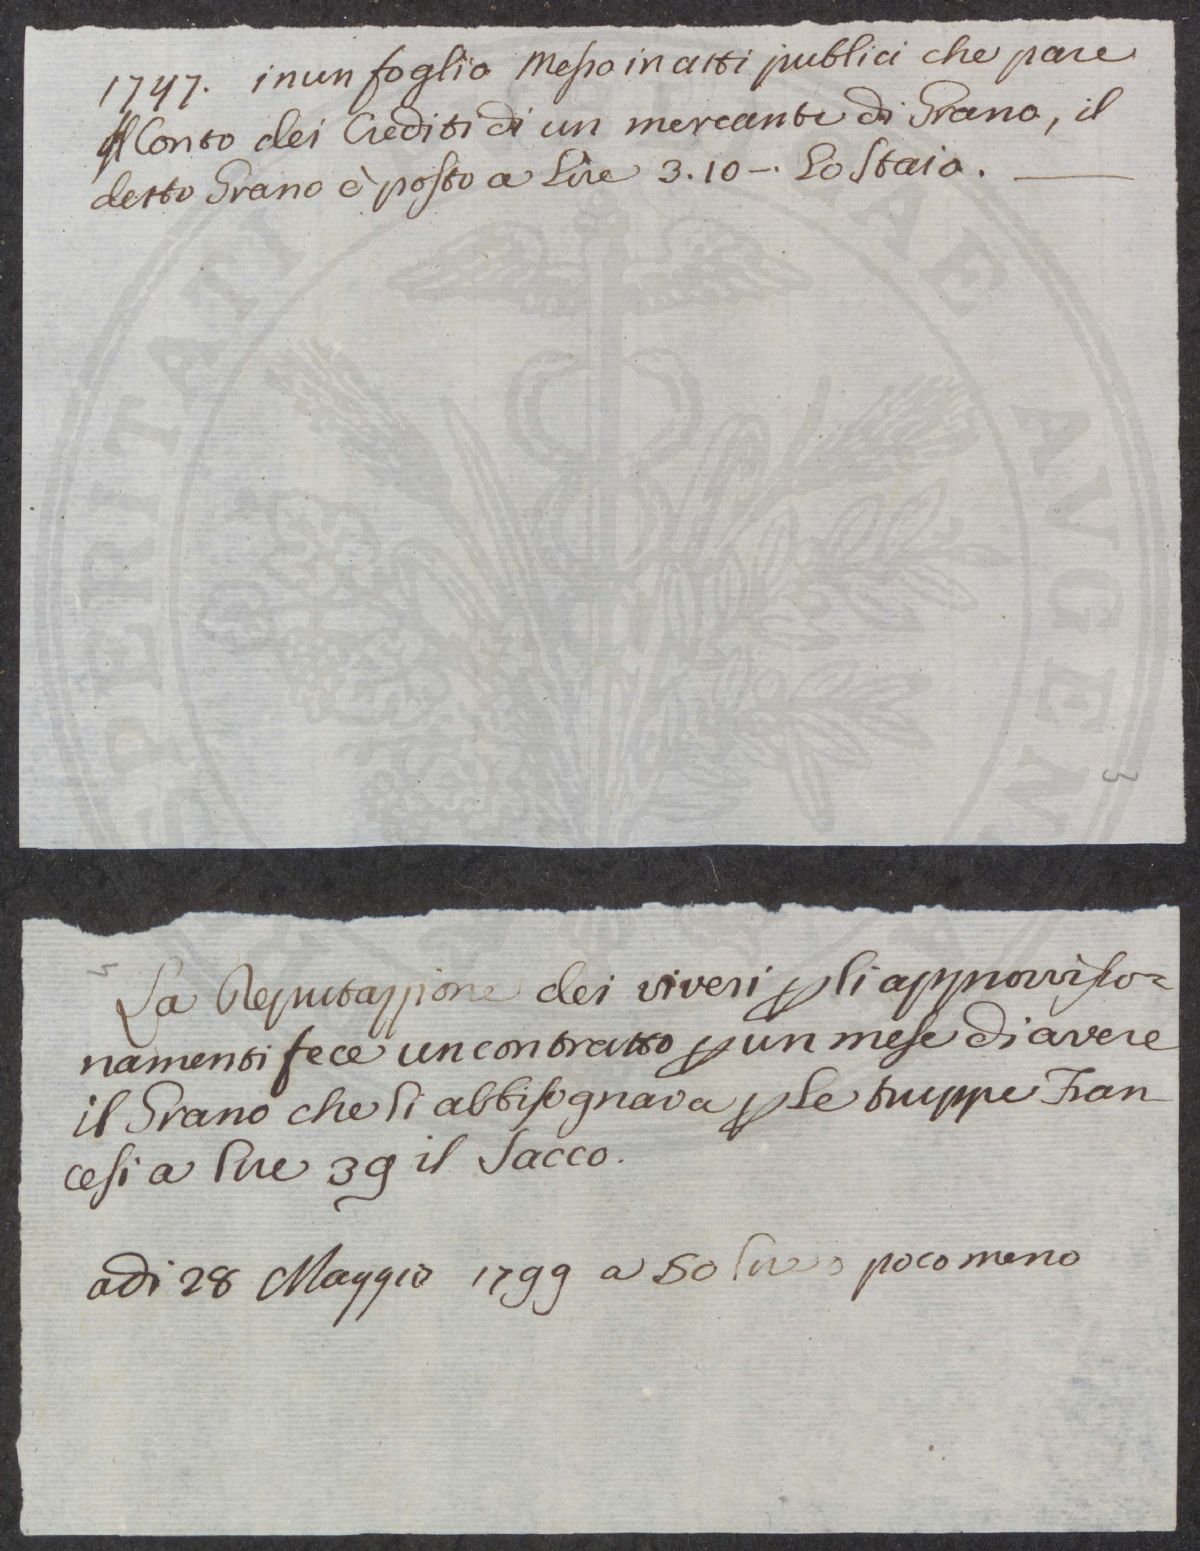 1747. in un foglio Messo in atti publici che pare
il Conto dei Crediti di un mercante di Grano, il
detto Grano è posto a Lire 3.10 -. Lo Staio.
3
5
La Deputazzione dei viveri p li approvviso=
namenti fece un contratto p un mese di avere
il Grano che li abbisognava p Le truppe Fran
cesi a lire 39 il Sacco.
adi 28 Maggio 1799 a 50 lire o poco meno
SPERITATI
AE AVGEN